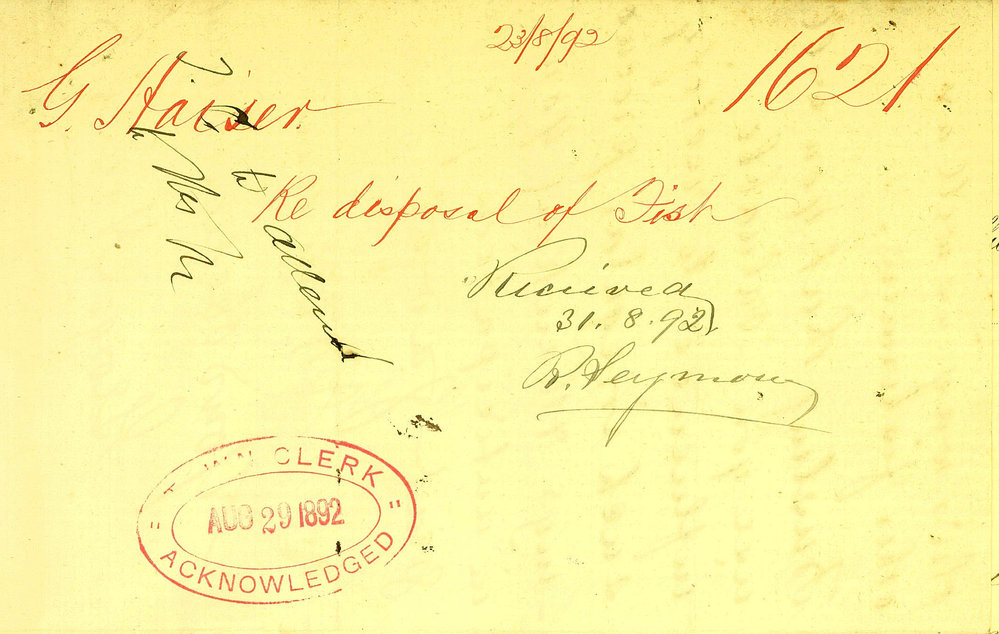 23/8/92
1621
G. Haiser.
Re disposal of Fish
Received
31.8.92.
R. Seymour
to attend
TOWN CLERK
AUG 29 1892
ACKNOWLEDGED